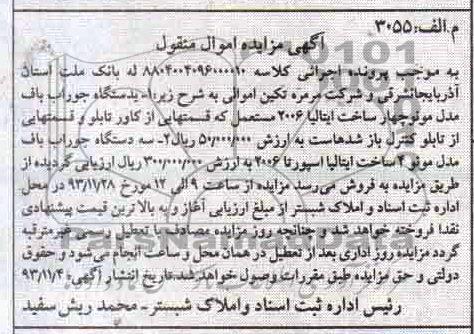 م.الف: ۳۰۵۵
آگهی مزایده اموال منقول
به موجب پرونده اجرائی کلاسه ۸۸۰۴۰۰۴۰۹۶۰۰۰۰۱۰ له بانک ملت استان
آذربایجانشرقی و شرکت مرمره تکین اموالی به شرح زیر:۱-یدستگاه جوراب باف
مدل مونوچهار ساخت ایتالیا ۲۰۰۶ مستعمل که قسمتهایی از کاور تابلو و قسمتهایی
از تابلو کنترل باز شدهاست به ارزش ۵۰/۰۰۰/۰۰۰ ریال۲- سه دستگاه جوراب باف
مدل مونو ۴ ساخت ایتالیا اسپورتا ۲۰۰۶ به ارزش ۳۰۰/۰۰۰/۰۰۰ ریال ارزیابی گردیده از
طریق مزایده به فروش می‌رسد مزایده از ساعت ۹ الی ۱۲ مورخ ۹۳/۱۱/۲۸ در محل
اداره ثبت اسناد و املاک شبستر از مبلغ ارزیابی آغاز و به بالا ترین قیمت پیشنهادی
نقدا فروخته خواهد شد و چنانچه روز مزایده مصادف با تعطیل رسمی غیرمترقبه
گردد مزایده روز اداری بعد از تعطیل در همان محل و ساعت انجام می‌شود و حقوق
دولتی و حق مزایده طبق مقررات وصول خواهد شد.تاریخ انتشار آگهی: ۹۳/۱۱/۴
رئیس اداره ثبت اسناد واملاک شبستر- محمد ریش سفید
ParsNamadData